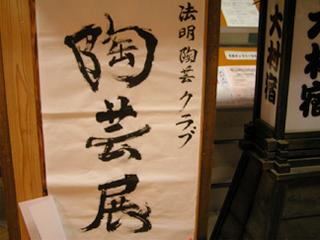 法明陶芸クラブ
陶芸展
大村宿
大村宿